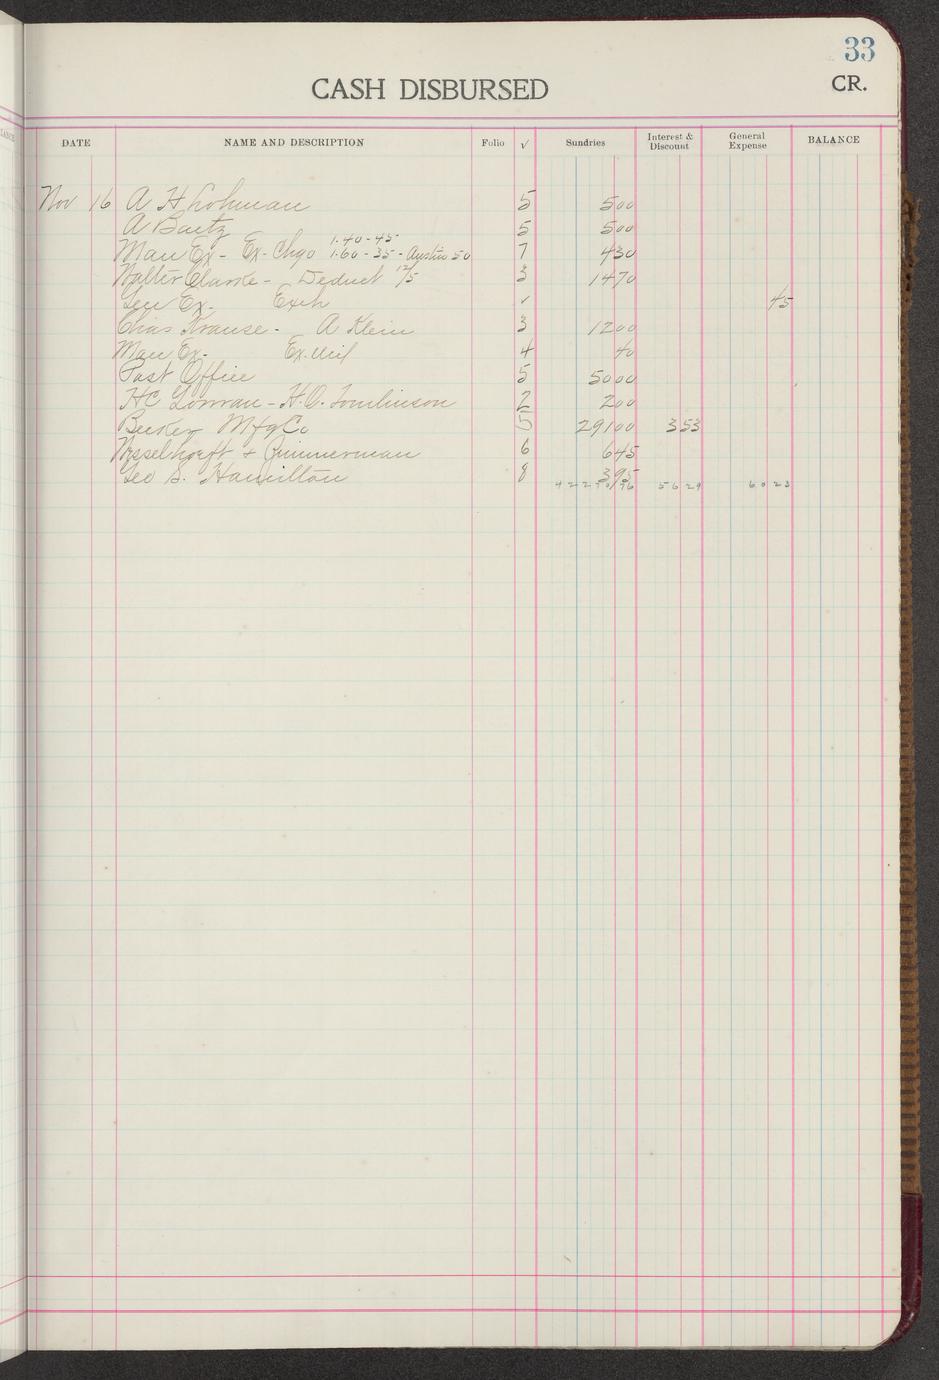 33
CASH DISBURSED
CR.
DATE NAME AND DESCRIPTION Folio √ Sundries Interest & Discount General Expense BALANCE
Nov 16 A H Lohman 5 5 00
A Bartz 5 5 00
1.40-45
Man Ex- Ex-Chgo 1.60-35-Austin 50 7 4 30
Walter Clarke - Deduct 12/5 3 14 70
Gen Ex. Exch √ 45
Chas Krause - A Klein 3 12 00
Man Ex. Ex. Mil 4 40
Post Office 5 50 00
HC Lorman - H.O. Tomlinson 2 2 00
Becker Mfg Co 5 291 00 3 53
Wesselhoeft & Zimmerman 6 6 45
Geo S. Hamilton 8 3 95
56 29 60 23